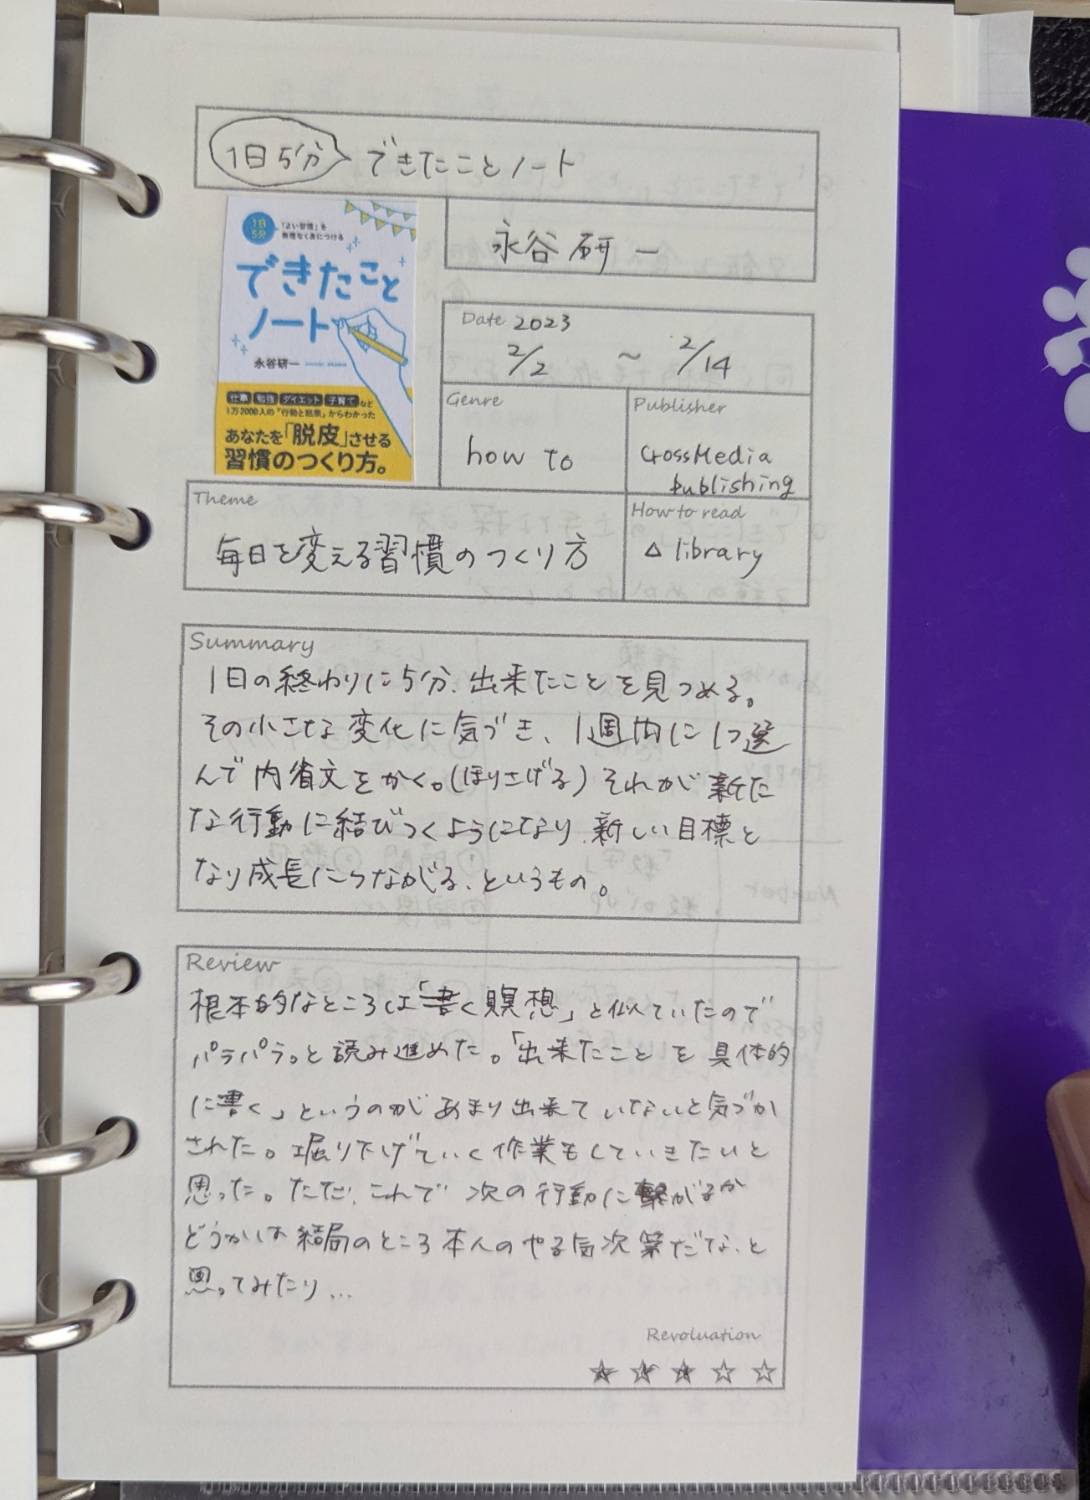 1日5分 できたことノート
1日
5分
「よい習慣」を
無理なく身につける
できたこと
ノート
永谷研一
仕事 勉強 ダイエット 子育て など
1万2000人の"行動と結果"からわかった
あなたを「脱皮」させる
習慣のつくり方。
永谷研一
Date 2023
2/2 ~ 2/14
Genre
how to
Publisher
CrossMedia
publishing
Theme
毎日を変える習慣のつくり方
How to read
△ library
Summary
1日の終わりに5分、出来たことを見つめる。
その小さな変化に気づき、1週間に1つ選
んで内省文をかく。(ほりさげる)それが新た
な行動に結びつくようになり、新しい目標と
なり成長につながる、というもの。
Review
根本的なところは「書く瞑想」と似ていたので
パラパラっと読み進めた。「出来たことを具体的
に書く」というのがあまり出来ていないと気づか
された。堀り下げていく作業もしていきたいと
思った。ただ、これで次の行動に繋がるか
どうかは結局のところ本人のやる気次第だな、と
思ってみたり…
Revoluation
★ ★ ★ ☆ ☆